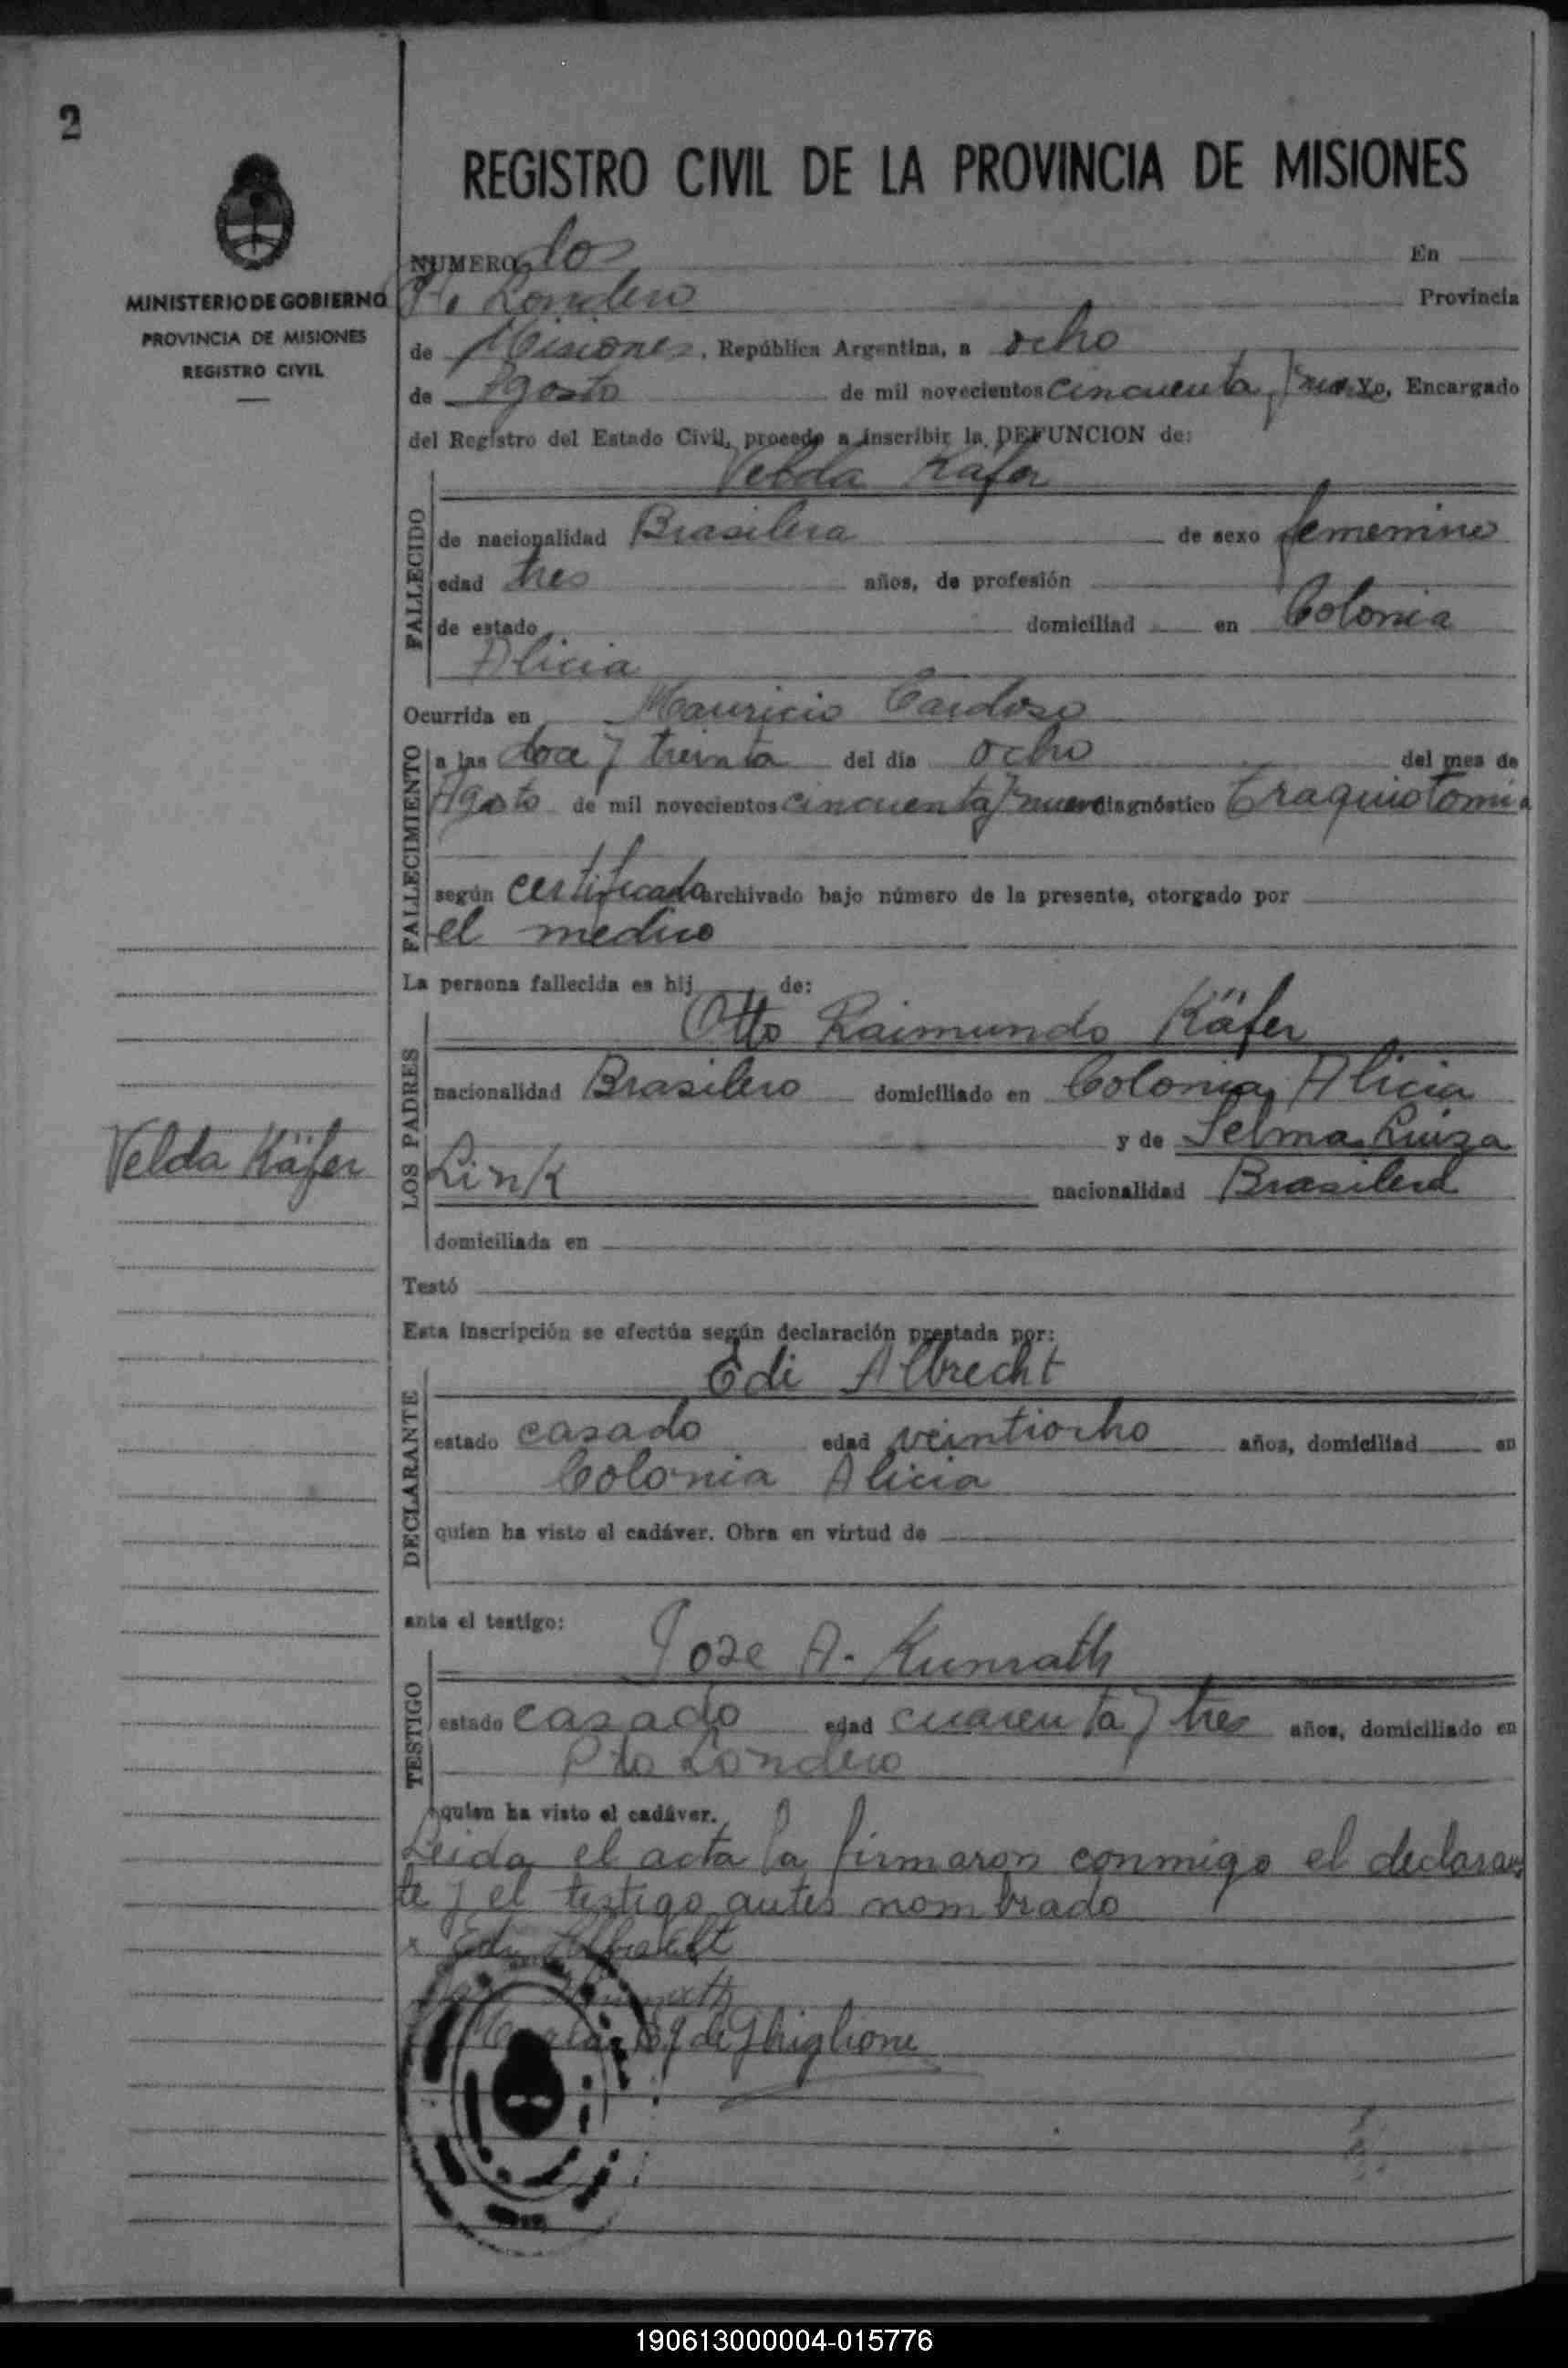 2
REGISTRO CIVIL DE LA PROVINCIA DE MISIONES
MINISTERIO DE GOBIERNO
PROVINCIA DE MISIONES
REGISTRO CIVIL
NUMERO dos En
Londero Provincia
de Misiones, República Argentina, a ocho
de Agosto de mil novecientos cincuenta y nueve Yo, Encargado
del Registro del Estado Civil, procedo a inscribir la DEFUNCION de:
Velda Kafer
FALLECIDO
de nacionalidad Brasilera de sexo femenino
edad tres años, de profesión
de estado domiciliad en Colonia
Alicia
Ocurrida en Mauricio Cardoso
FALLECIMIENTO
a las doce y treinta del día ocho del mes de
Agosto de mil novecientos cincuenta y nueve diagnóstico Traquiotomia
según certificado archivado bajo número de la presente, otorgado por
el medico
La persona fallecida es hij de:
LOS PADRES
Otto Raimundo Käfer
nacionalidad Brasilero domiciliado en Colonia Alicia
y de Selma Luiza
Velda Käfer
Link nacionalidad Brasilera
domiciliada en
Testó
Esta inscripción se efectúa según declaración prestada por:
DECLARANTE
Edi Albrecht
estado casado edad veintiocho años, domiciliad en
Colonia Alicia
quien ha visto el cadáver. Obra en virtud de
ante el testigo:
TESTIGO
Jose A. Kunrath
estado casado edad cuarenta y tres años, domiciliado en
Pto Londero
quien ha visto el cadáver.
Leida el acta la firmaron conmigo el declaran
te y el testigo antes nombrado
Edi Albrecht
Kunrath
de Ghiglione
190613000004-015776